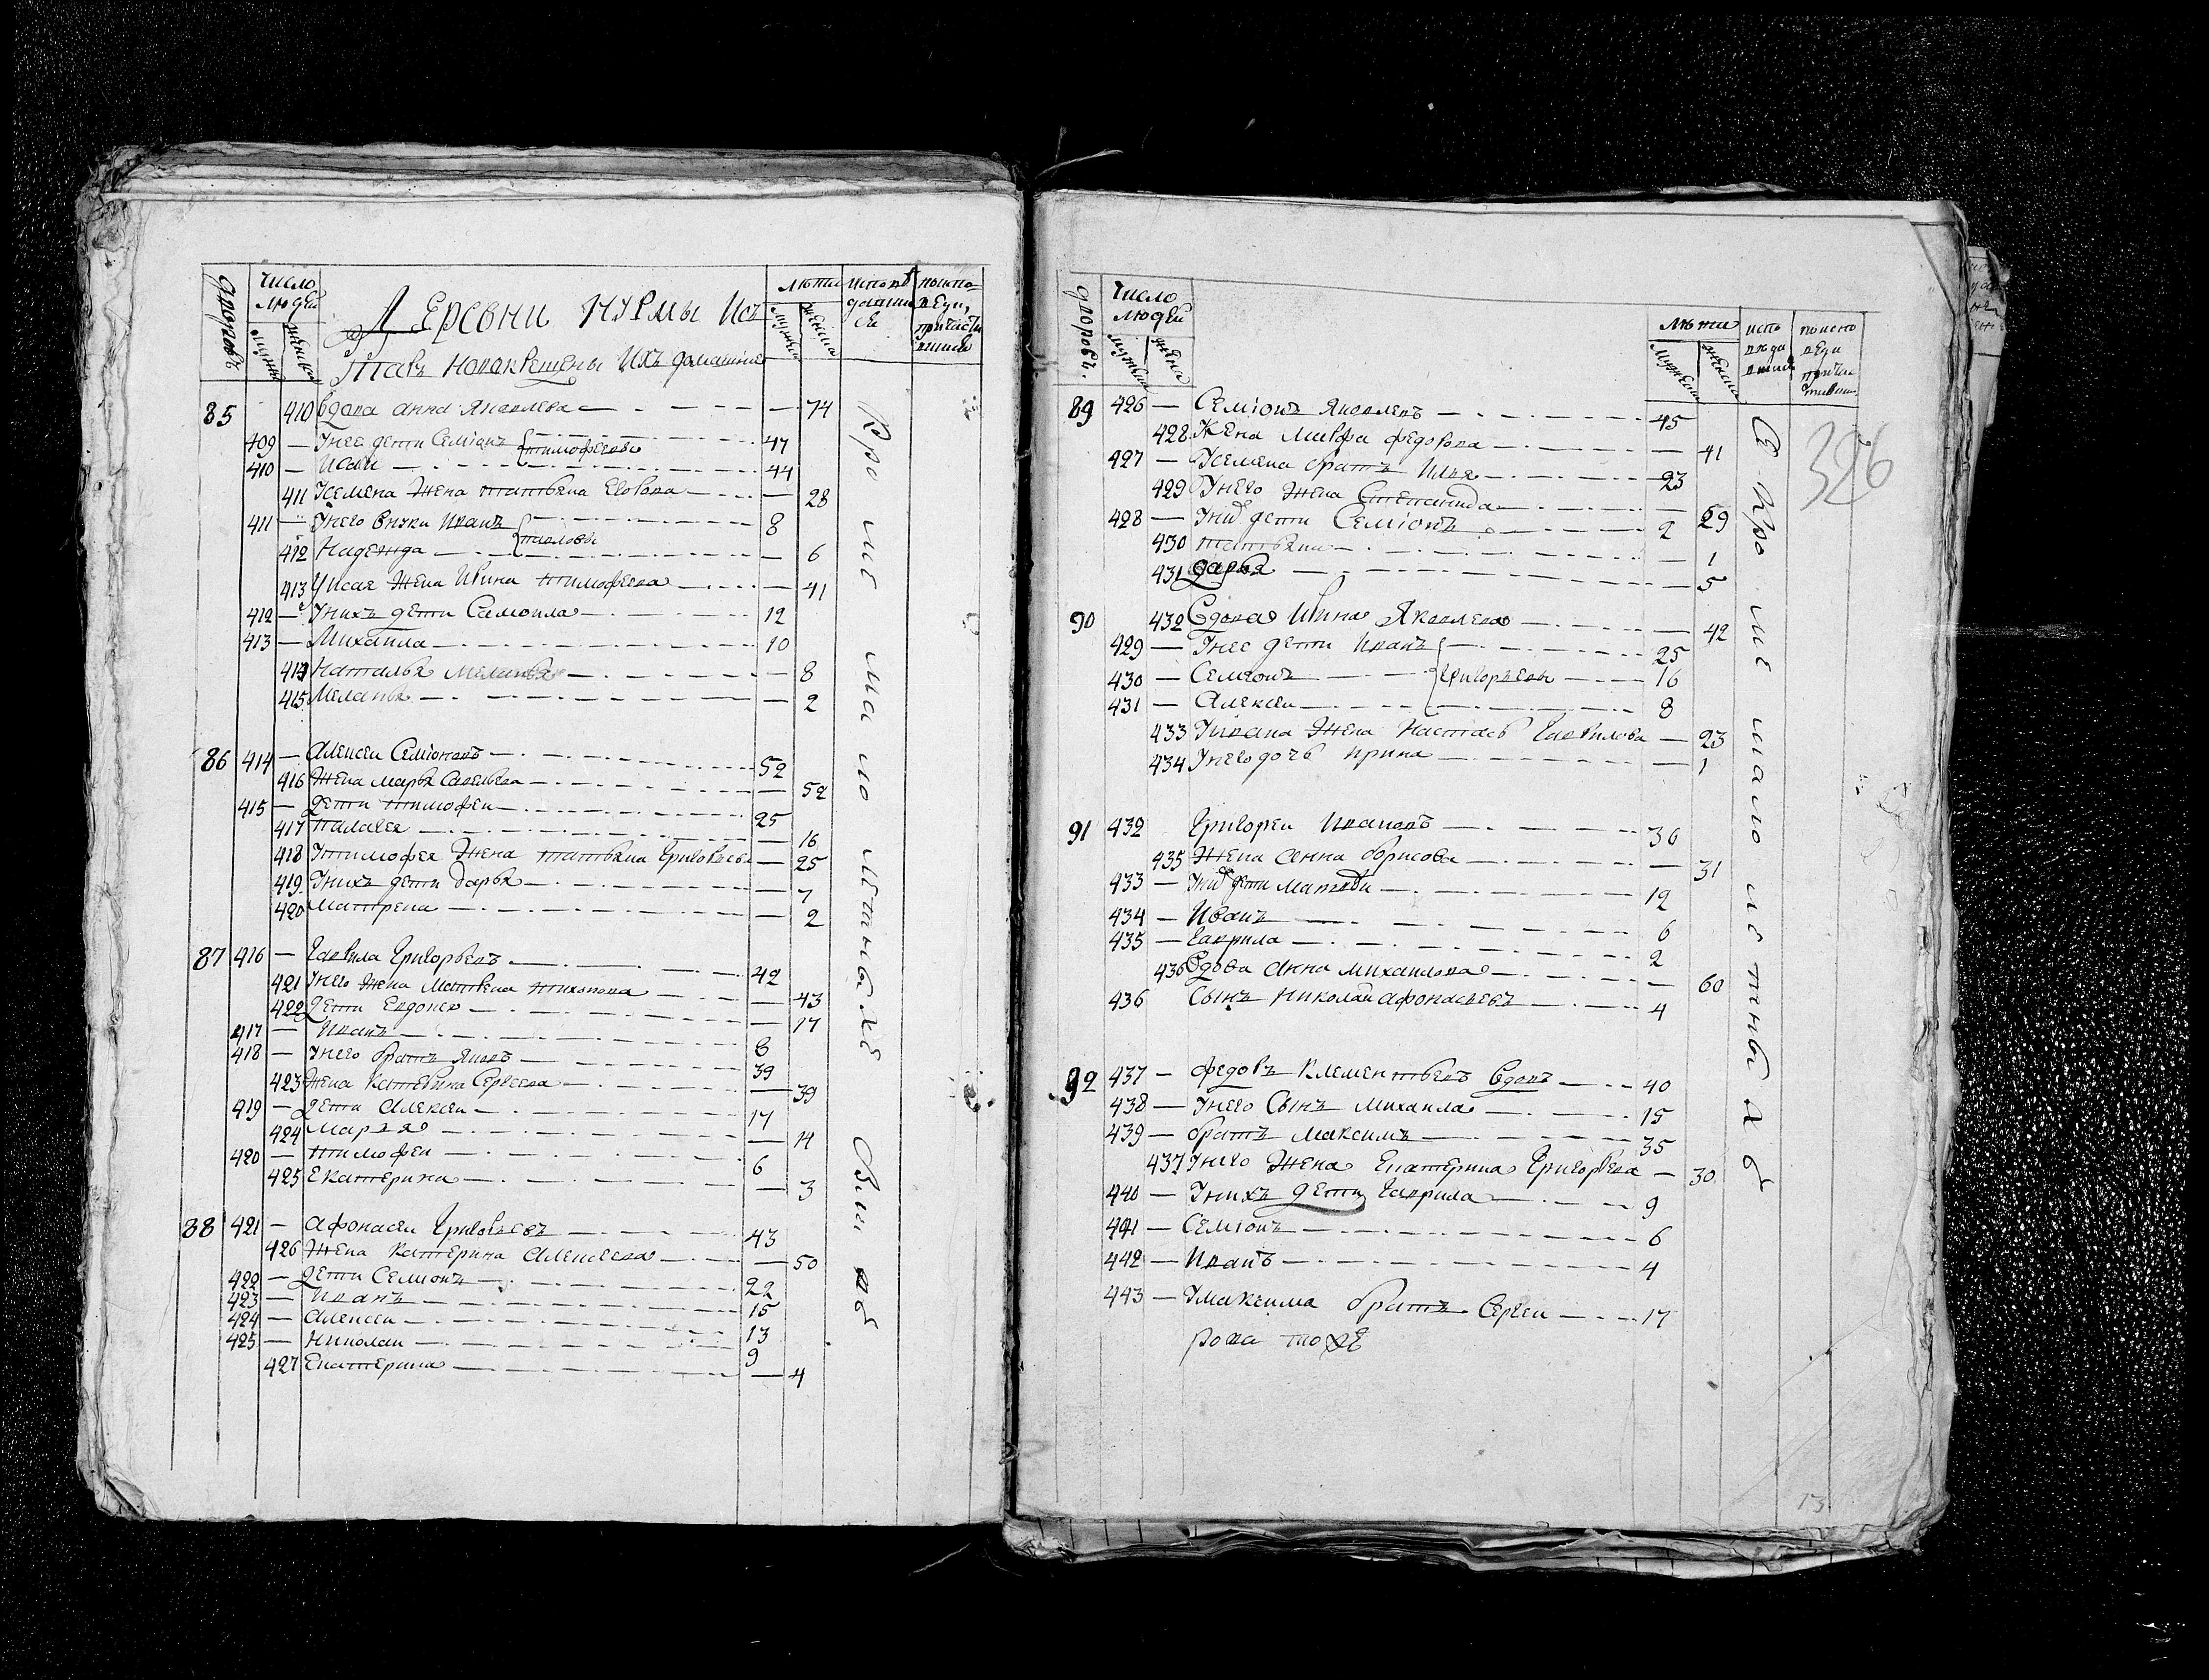 дворовъ
Число людей
мужеска
женска
Деревни Нурмы Исъ
татаръ новокрещены Ихъ домашние
лѣта
мужеска
женска
исповѣдавшися
85 410 Вдова Анна Яковлева — 74
409 — У нее дети Семионъ 47
тимофеевы
410 — Исаи — 44
411 У Семена Жена татьяна Егорова — 28
411 — У него внуки Иванъ 8
павловы
412 Надежда — 6
413 У Исая Жена Ирина тимофеева — 41
412 — У нихъ дети Самоила — 12
413 — Михаила — 10
414 Наталья — 8
415 Меланья — 2
86 414 — Алексеи Семионовъ — 52
416 Жена Марья Савельева — 52
415 — дети тимофеи — 25
417 палагея — 16
418 У тимофея Жена татьяна Григорьева — 25
419 У нихъ дети дарья — 7
420 Матрена — 2
87 416 — Гаврила Григорьевъ — 42
421 У него Жена Матрена тихонова — 43
422 дети Евдокея — 17
417 — Иванъ — 8
418 — У него братъ Яковъ — 39
423 Жена Катерина Сергеева — 39
419 — дети Алексеи — 17
424 Марья — 14
420 — тимофеи — 6
425 Екатерина — 3
88 421 — Афонасеи Григорьевъ — 43
426 Жена Катерина Алексеева — 50
422 — дети Семионъ — 22
423 — Иванъ — 15
424 — Алексеи — 13
425 — Николаи — 9
427 Екатерина — 4
Кро ме ма ло летныхъ
326
дворовъ.
Число людей
мужеска
женска
лѣта
мужеска
женска
исповѣдавшися
89 426 — Семионъ Яковлевъ — 45
428 Жена Марфа Федорова — 41
427 — У Семена братъ Илья — 23
429 У него Жена Степанида — 29
428 — У них дети Семионъ — 2
430 татьяна — 1
431 дарья — 5
90 432 Вдова Ирина Яковлева — 42
429 — У нее дети Иванъ — 25
430 — Семионъ — Григорьевы — 16
431 — Алексеи — 8
433 У Ивана Жена Настасья Гаврилова — 23
434 У него дочь Ирина — 1
91 432 Григореи Ивановъ — 36
435 Жена Анна борисова — 31
433 — У них дети Матвеи — 12
434 — Иванъ — 6
435 — Гаврила — 2
436 Вдова Анна Михаилова — 60
436 Сынъ Николаи Афонасьевъ — 4
92 437 — Федоръ Клементьевъ Вдовъ — 40
438 — У него Сынъ Михаила — 15
439 — братъ Максимъ — 35
437 У него Жена Екатерина Григорьева — 30
440 — У нихъ дети Гаврила — 9
441 — Семионъ — 6
442 — Иванъ — 4
443 — У Максима братъ Сергеи — 17
Кро ме мало ле тны х
13